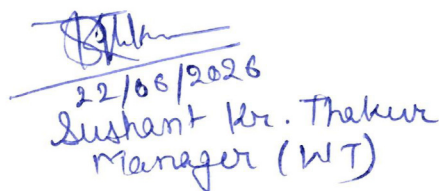 22/06/2026
Sushant Kr. Thakur
Manager (WT)